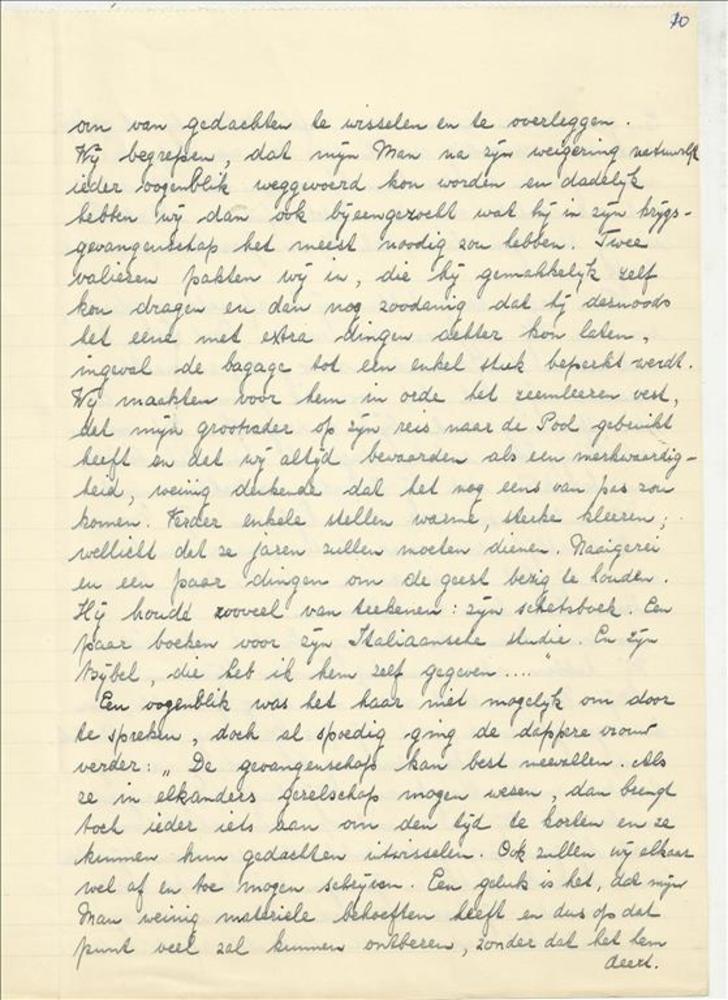 10
om van gedachten te wisselen en te overleggen.
Wij begrepen, dat mijn Man na zijn weigering natuurlijk
ieder oogenblik weggevoerd kon worden en dadelijk
hebben wij dan ook bijeengezocht wat hij in zijn krijgs-
gevangenschap het meest noodig zou hebben. Twee
valiezen pakten wij in, die hij gemakkelijk zelf
kon dragen en dan nog zoodanig dat hij desnoods
het eene met extra dingen achter kon laten,
ingeval de bagage tot een enkel stuk beperkt werdt.
Wij maakten voor hem in orde het zeemleeren vest,
dat mijn grootvader op zijn reis naar de Pool gebruikt
heeft en dat wij altijd bewaarden als een merkwaardig-
heid, weinig denkende dat het nog eens van pas zou
komen. Verder enkele stellen warme, sterke kleeren;
wellicht dat ze jaren zullen moeten dienen. Naaigerei
en een paar dingen om de geest bezig te houden.
Hij houdt zooveel van teekenen: zijn schetsboek. Een
paar boeken voor zijn Italiaansche studie. En zijn
Bijbel, die heb ik hem zelf gegeven...."
Een oogenblik was het haar niet mogelijk om door
te spreken, doch al spoedig ging de dappere vrouw
verder: „De gevangenschap kan best meevallen. Als
ze in elkanders gezelschap mogen wezen, dan brengt
toch ieder iets aan om den tijd te korten en ze
kunnen hun gedachten uitwisselen. Ook zullen wij elkaar
wel af en toe mogen schrijven. Een geluk is het, dat mijn
Man weinig materiele behoeften heeft en dus op dat
punt veel zal kunnen ontberen, zonder dat het hem
deert.